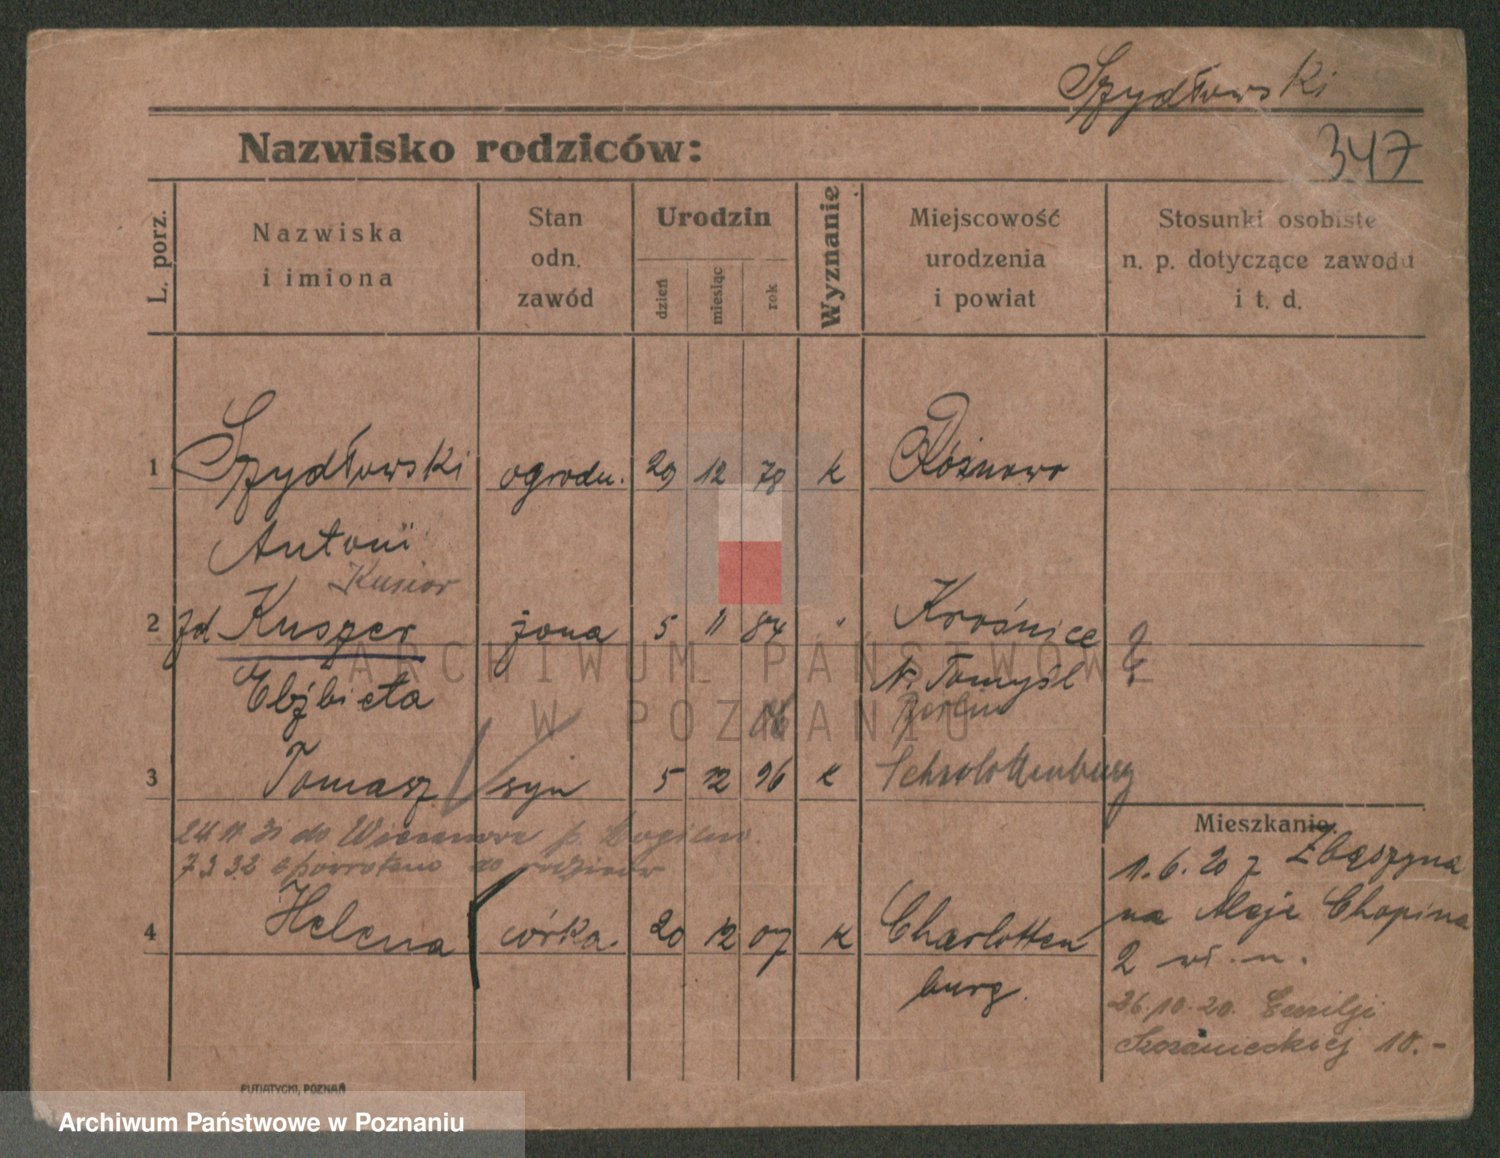 Szydłowski
347
Nazwisko rodziców:
L. porz.
Nazwiska
i imiona
Stan
odn.
zawód
Urodzin
dzień
miesiąc
rok
Wyznanie
Miejscowość
urodzenia
i powiat
Stosunki osobiste
n. p. dotyczące zawodu
i t. d.
1 Szydłowski ogrodn. 29 12 78 k Różnowo
Antoni
Kusior
2 zd Kuszer żona 5 11 84 " Krośnice
Elżbieta N. Tomyśl
3 Tomasz syn 5 12 96 k
24 11 31 do p. Mogilno.
7 3 32 do rodziców
4 Helena córka. 20 12 07 k Charlotten
burg
Mieszkanie.
1.6.20 z Zbąszyna
na Aleje Chopina
2
26.10.20. Emilji
Szczanieckiej 10.-
PUTIATYCKI, POZNAŃ
ARCHIWUM PAŃSTWOWE
W POZNANIU
Archiwum Państwowe w Poznaniu